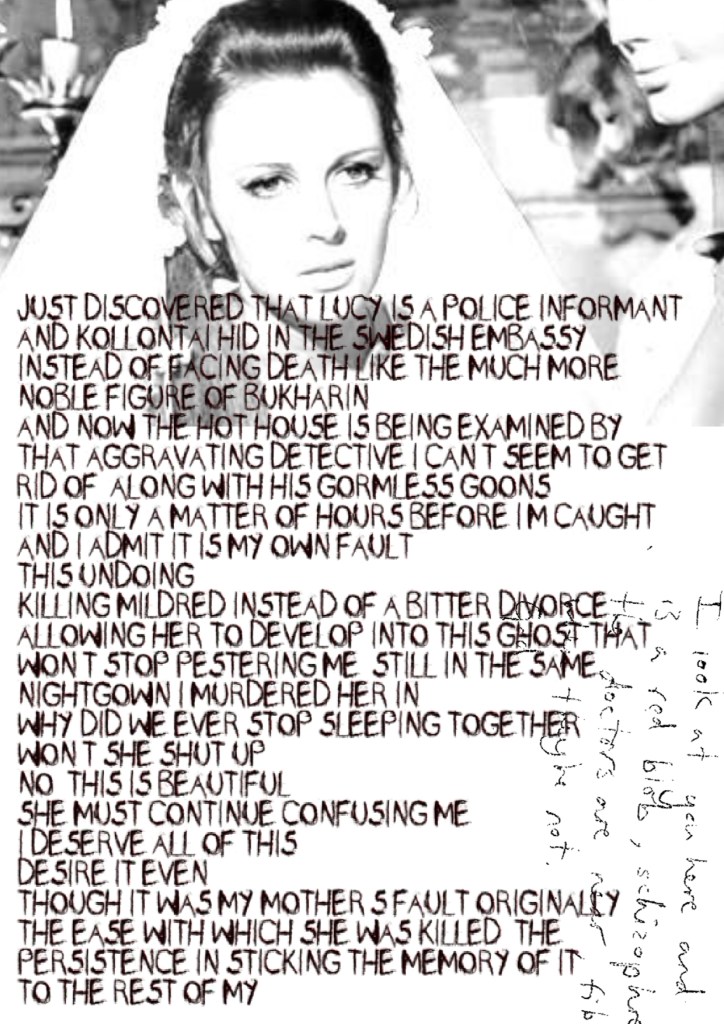 JUST DISCOVERED THAT LUCY IS A POLICE INFORMANT
AND KOLLONTAI HID IN THE SWEDISH EMBASSY
INSTEAD OF FACING DEATH LIKE THE MUCH MORE
NOBLE FIGURE OF BUKHARIN
AND NOW THE HOT HOUSE IS BEING EXAMINED BY
THAT AGGRAVATING DETECTIVE I CAN T SEEM TO GET
RID OF ALONG WITH HIS GORMLESS GOONS
IT IS ONLY A MATTER OF HOURS BEFORE I M CAUGHT
AND I ADMIT IT IS MY OWN FAULT
THIS UNDOING
KILLING MILDRED INSTEAD OF A BITTER DIVORCE
ALLOWING HER TO DEVELOP INTO THIS GHOST THAT
WON T STOP PESTERING ME STILL IN THE SAME
NIGHTGOWN I MURDERED HER IN
WHY DID WE EVER STOP SLEEPING TOGETHER
WON T SHE SHUT UP
NO THIS IS BEAUTIFUL
SHE MUST CONTINUE CONFUSING ME
I DESERVE ALL OF THIS
DESIRE IT EVEN
THOUGH IT WAS MY MOTHER S FAULT ORIGINALLY
THE EASE WITH WHICH SHE WAS KILLED THE
PERSISTENCE IN STICKING THE MEMORY OF IT
TO THE REST OF MY
I look at you here and
is a red blob, schizophre
the doctors are
maybe not.